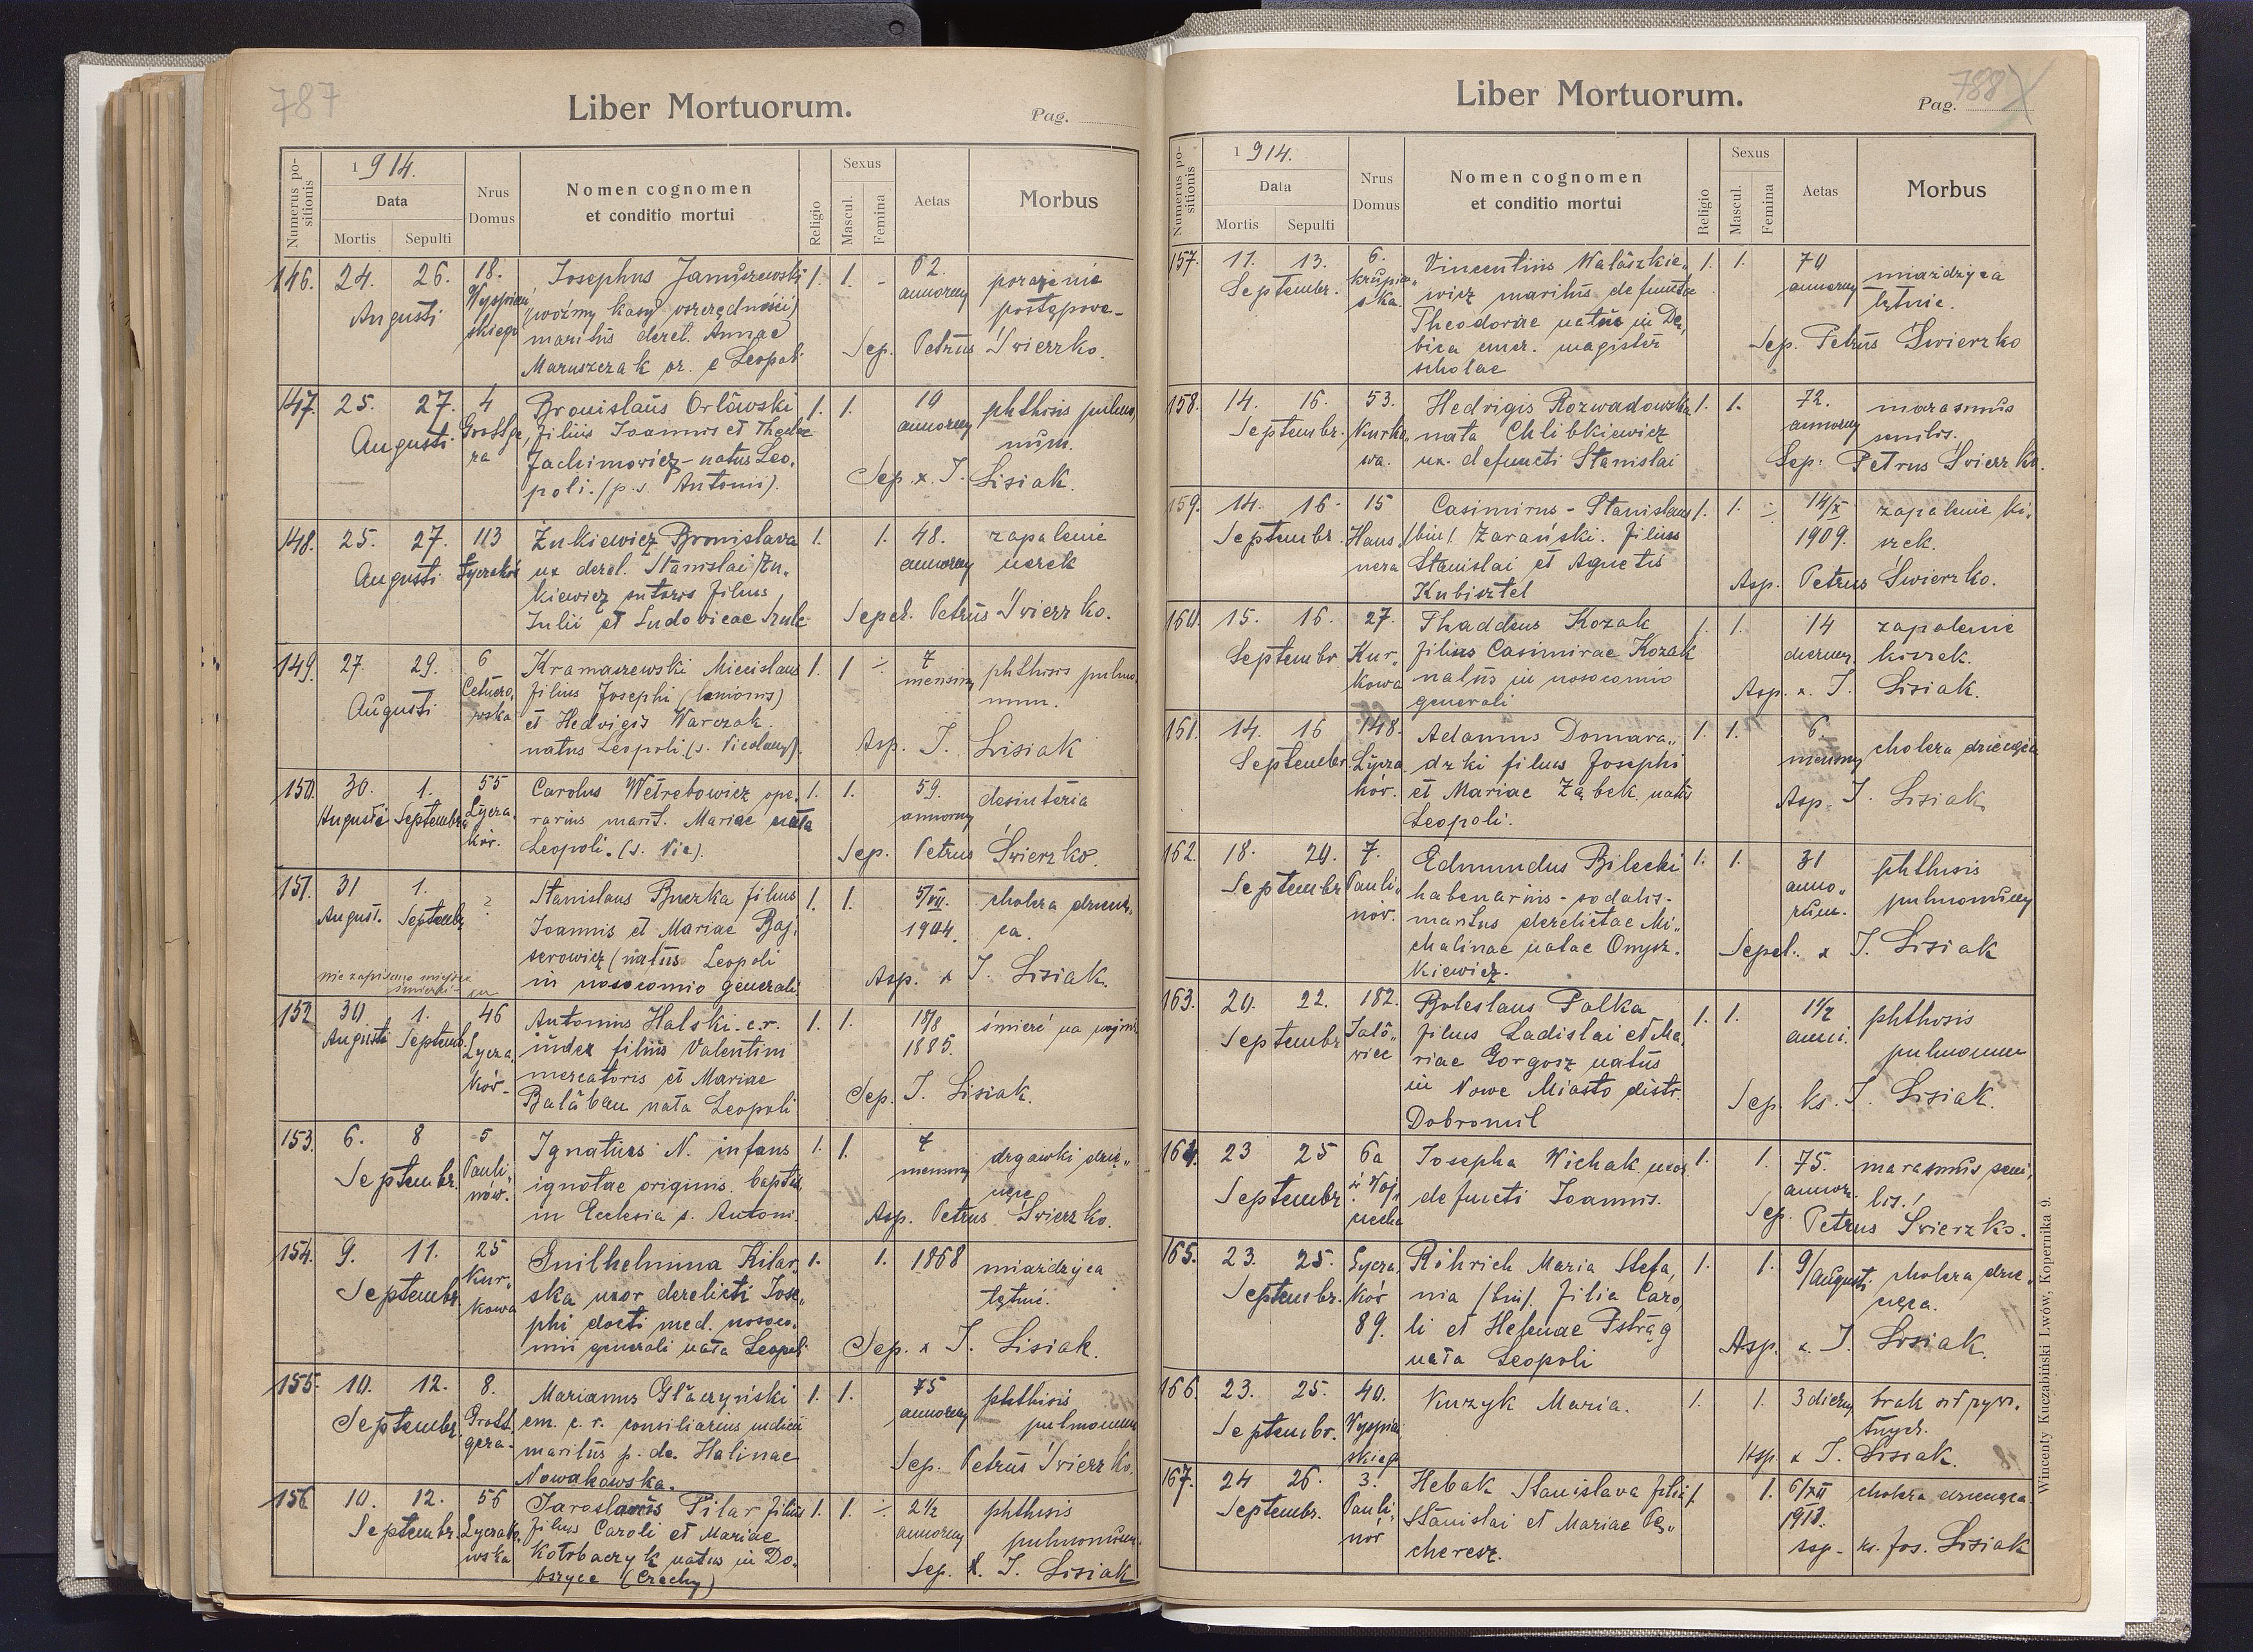 787
Liber Mortuorum.
Pag.
Numerus positionis
1914.
Data
Mortis
Sepulti
Nrus Domus
Nomen cognomen
et conditio mortui
Religio
Sexus
Mascul.
Femina
Aetas
Morbus
146. 24. 26. 18. Josephus Januszewski 1. 1. - 62. porażenie
Augusti annorum postępowe-
(woźny kasy oszczędności)
maritus derel. Annae Sep. Petrus Świerzko.
Maruszczak or. e Leopoli
147. 25. 27. 4 Bronislaus Orłowski 1. 1. 19 phthisis pulmo,
Augusti filius Joannis et Theclae annorum num.
Jachimowicz - natus Leo.
poli. (p. s. Antonii). Sep. x. J. Lisiak.
148. 25. 27. 113 Żukiewicz Bronislava 1. 1. 48. zapalenie
Augusti ux derel. Stanislai Żu, annorum nerek
kiewicz sutoris filius
Julii et Ludovicae Sepel. Petrus Świerzko.
149. 27. 29. 6 Kramaszewski Miecislaus 1. 1 7 phthisis pulmo,
Augusti filius Josephi (lanionis) mensium num.
et Hedvigis Warczak.
natus Leopoli. Asp. J. Lisiak
150. 30. 1. 55 Carolus Wetrebowicz ope. 1. 1. 59. desinteria
Augusti Septembr. Łycza. rarius marit. Mariae nata annorum
kór. Leopoli. Sep. Petrus Świerzko.
151. 31 1. ? Stanislaus Buczka filius 1. 1. 5/VII. cholera dziecię,
August. Septembr Joannis et Mariae Baj. 1904. ca.
serowicz (natus Leopoli
nie zapisano miejsca in nosocomio generali. Asp. x J. Lisiak.
śmierci
152 30. 1. 46 Antonius Halski. c. r. 1. 1. 18/8 śmierć na wojnie
Augusti Septemb. Łycza. iudex filius Valentini 1885.
kór- mercatoris et Mariae
Bałaban nata Leopoli Sep. J. Lisiak.
153. 6. 8 5 Ignatius N. infans 1. 1. 7 drgawki dzie,,
Septembr. Pauli, ignotae originis. baptis, mensium cięce
nów. in Ecclesia s. Antoni. Asp. Petrus Świerzko.
154. 9. 11. 25 Guilhelmina Kilar, 1. 1. 1868 miażdżyca
Septembr. Kur, ska uxor derelicti Jose, tętnic.
kowa phi docti med. nosoco,
mii generali nata Leopoli Sep. x J. Lisiak.
155. 10. 12. 8. Marianus Głaczyński 1. 1. 75 phthisis
Septembr. Grott, em. c. r. consiliarius annorum pulmonum
gera- maritus p. de. Halinae
Nowakowska. Sep. Petrus Świerzko.
156. 10. 12. 56 Jaroslaus Pilar filius 1. 1. 2½ phthisis
Septembr. Łyczako, filius Caroli et Mariae annorum pulmonum.
wska Kołrbaczyk natus in Do,
brzyce (Czechy) Sep. X. J. Lisiak
788
Liber Mortuorum.
Pag.
Numerus positionis
1914.
Data
Mortis
Sepulti
Nrus Domus
Nomen cognomen
et conditio mortui
Religio
Sexus
Mascul.
Femina
Aetas
Morbus
157. 11. 13. 6. Vincentius Walaszkie, 1. 1. 70 miażdżyca
Septembr. Krupia, wicz maritus defunctae annorum tętnic.
ska. Theodorae natus in Dę,
bica emer. magister Sep. Petrus Świerzko
scholae
158. 14. 16. 53. Hedvigis Rozwadowska 1. 1. 72. marasmus
Septembr. Kurko, nata Chlibkiewicz annorum senilis.
wa. ux. defuncti Stanislai Sep. Petrus Świerzko.
159. 14. 16. 15 Casimirus - Stanislaus 1. 1. 14/X zapalenie ki,
Septembr. Haus, (bin). Żarański. filius 1909. szek.
nera Stanislai et Agnetis
Kubisztel Asp. Petrus Świerzko.
160. 15. 16. 27. Thaddeus Kozak 1. 1. 14 zapalenie
Septembr Kur, filius Casimirae Kozak dierum. kiszek.
kowa natus in nosocomio
generali Asp. x. J. Lisiak.
161. 14. 16 148. Adamus Domara,, 1. 1. 6. cholera dziecięca
Septembr. Łycza dzki filius Josephi mensium
kór. et Mariae Ząbek natus
Leopoli. Asp. J. Lisiak
162. 18. 20. 7. Edmundus Bilecki 1. 1. 31 phthisis
Septembr Pauli,, habenarius - sodalis - anno,, pulmonum
nów. maritus derelictae Mi,, rum.
chalinae natae Onysz. Sepel. x J. Lisiak
kiewicz.
163. 20. 22. 182. Boleslaus Palka 1. 1. 1½ phthisis
Septembr Jało,, filius Ladislai et Ma, anni. pulmonum
wiec riae Gorgosz natus
in Nowe Miasto distr. Sep. ks. J. Lisiak.
Dobromil
164. 23 25 6a Josepha Wichak uxor 1. 1. 75. marasmus seni,
Septembr ś. Woj, defuncti Joannis. annor. lis.
ciecha Sep. Petrus Świerzko.
165. 23. 25. Łycza, Röhrich Maria Stefa, 1. 1. 9/August. cholera dzie,
Septembr. kór nia (bin). filia Caro, cięca.
89. li et Helenae Pstrąg
nata Leopoli Asp. x. J. Lisiak.
166. 23. 25. 40. Kuzyk Maria. 1. 1. 3 dierum brak sił żywo,
Septembr. Wyspia, tnych.
skiego Asp. x J. Lisiak.
167. 24 26. 3. Hebak Stanislava filia 1. 1. 6/XII cholera dziecięca
Septembr. Pauli, Stanislai et Mariae 1913.
nów cheresz. Asp- ks. Jos. Lisiak
Wincenty Kuczabiński Lwów, Kopernika 9.